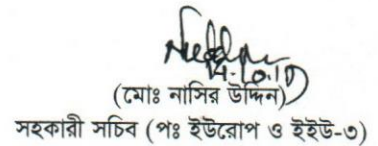 (মোঃ নাসির উদ্দিন)
সহকারী সচিব (পঃ ইউরোপ ও ইইউ-৩)